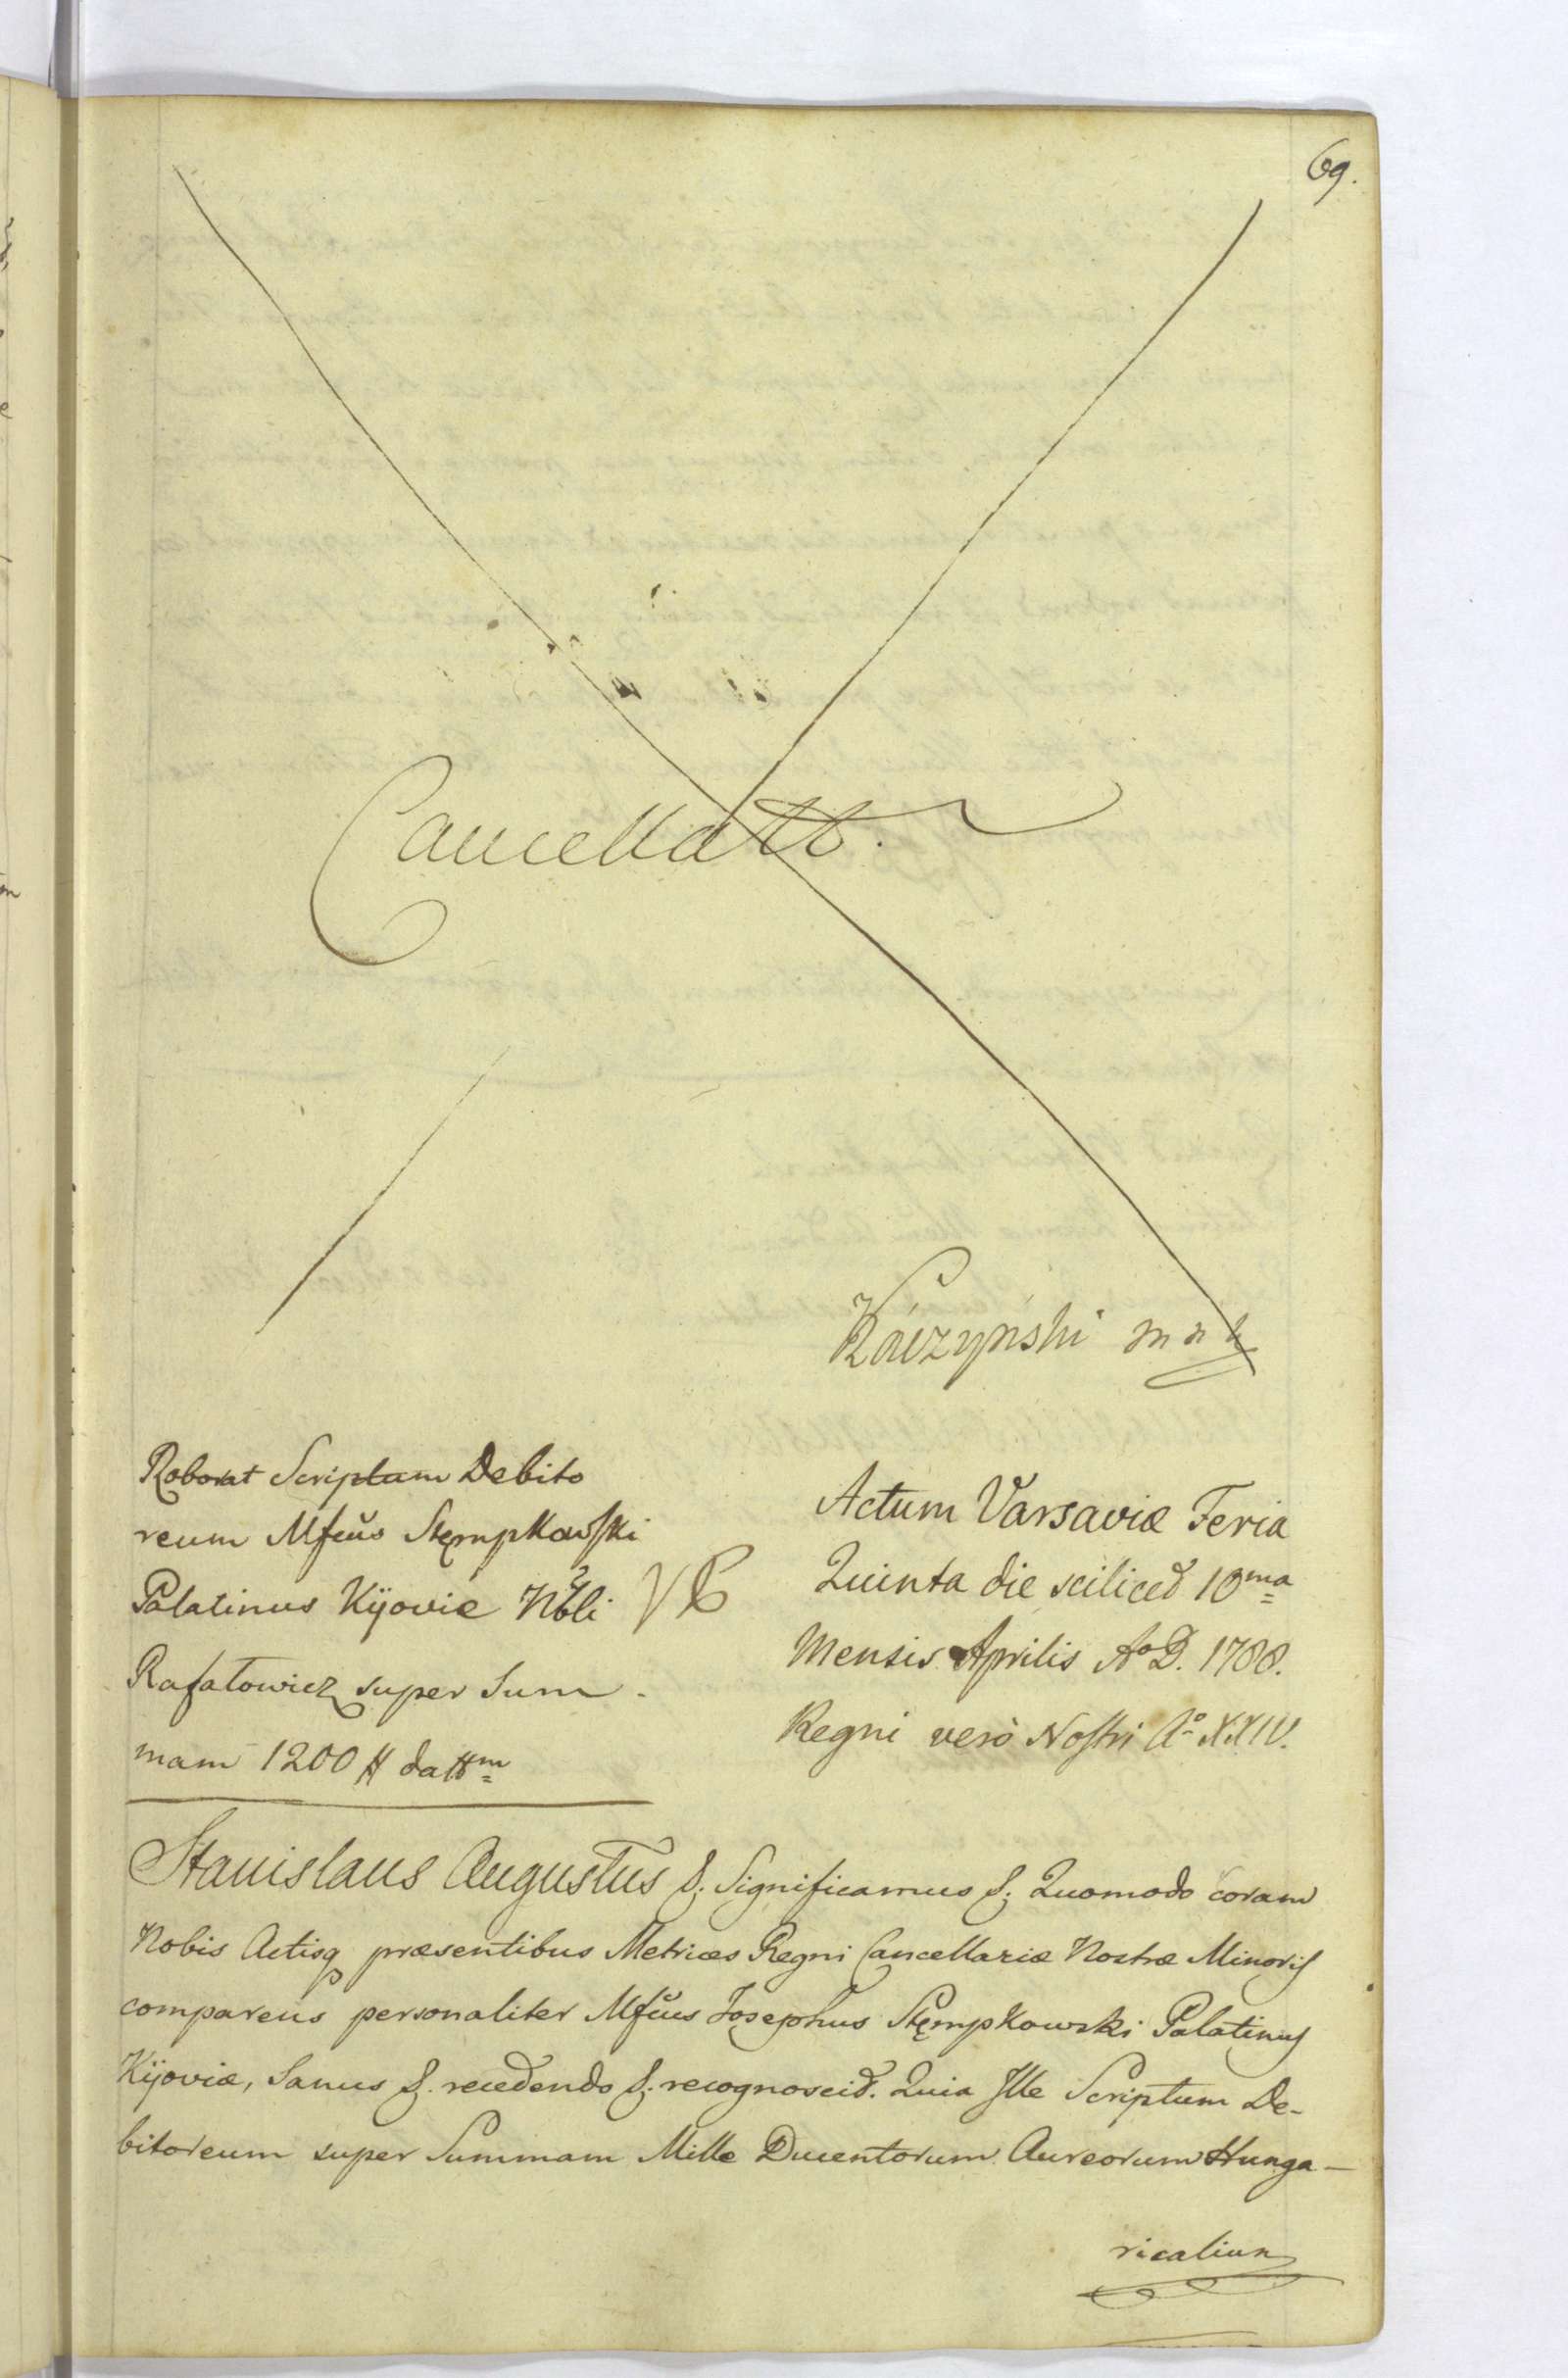 69.
Cancellatt.
Káczyński mp
Roborat Scriptum Debito
reum Mfcus Stempkowski
Palatinus Kijoviæ Nbli
Rafałowicz super Sum-
mam 1200 # datt^m
VC
Actum Varsaviæ Feria
Quinta die scilicet 10^ma
Mensis Aprilis A° D. 1788.
Regni verò Nostri A° XXIV.
Stanislaus Augustus &. Significamus &. Quomodo coram
Nobis Actisq præsentibus Metrices Regni Cancellariæ Nostræ Minoris
comparens personaliter Mfcus Josephus Stęmpkowski Palatinus
Kijoviæ, Sanus &. recedendo &. recognoscit. Quia Ille Scriptum De-
bitoreum super Summam Mille Ducentorum Aureorum Hunga-
ricalium